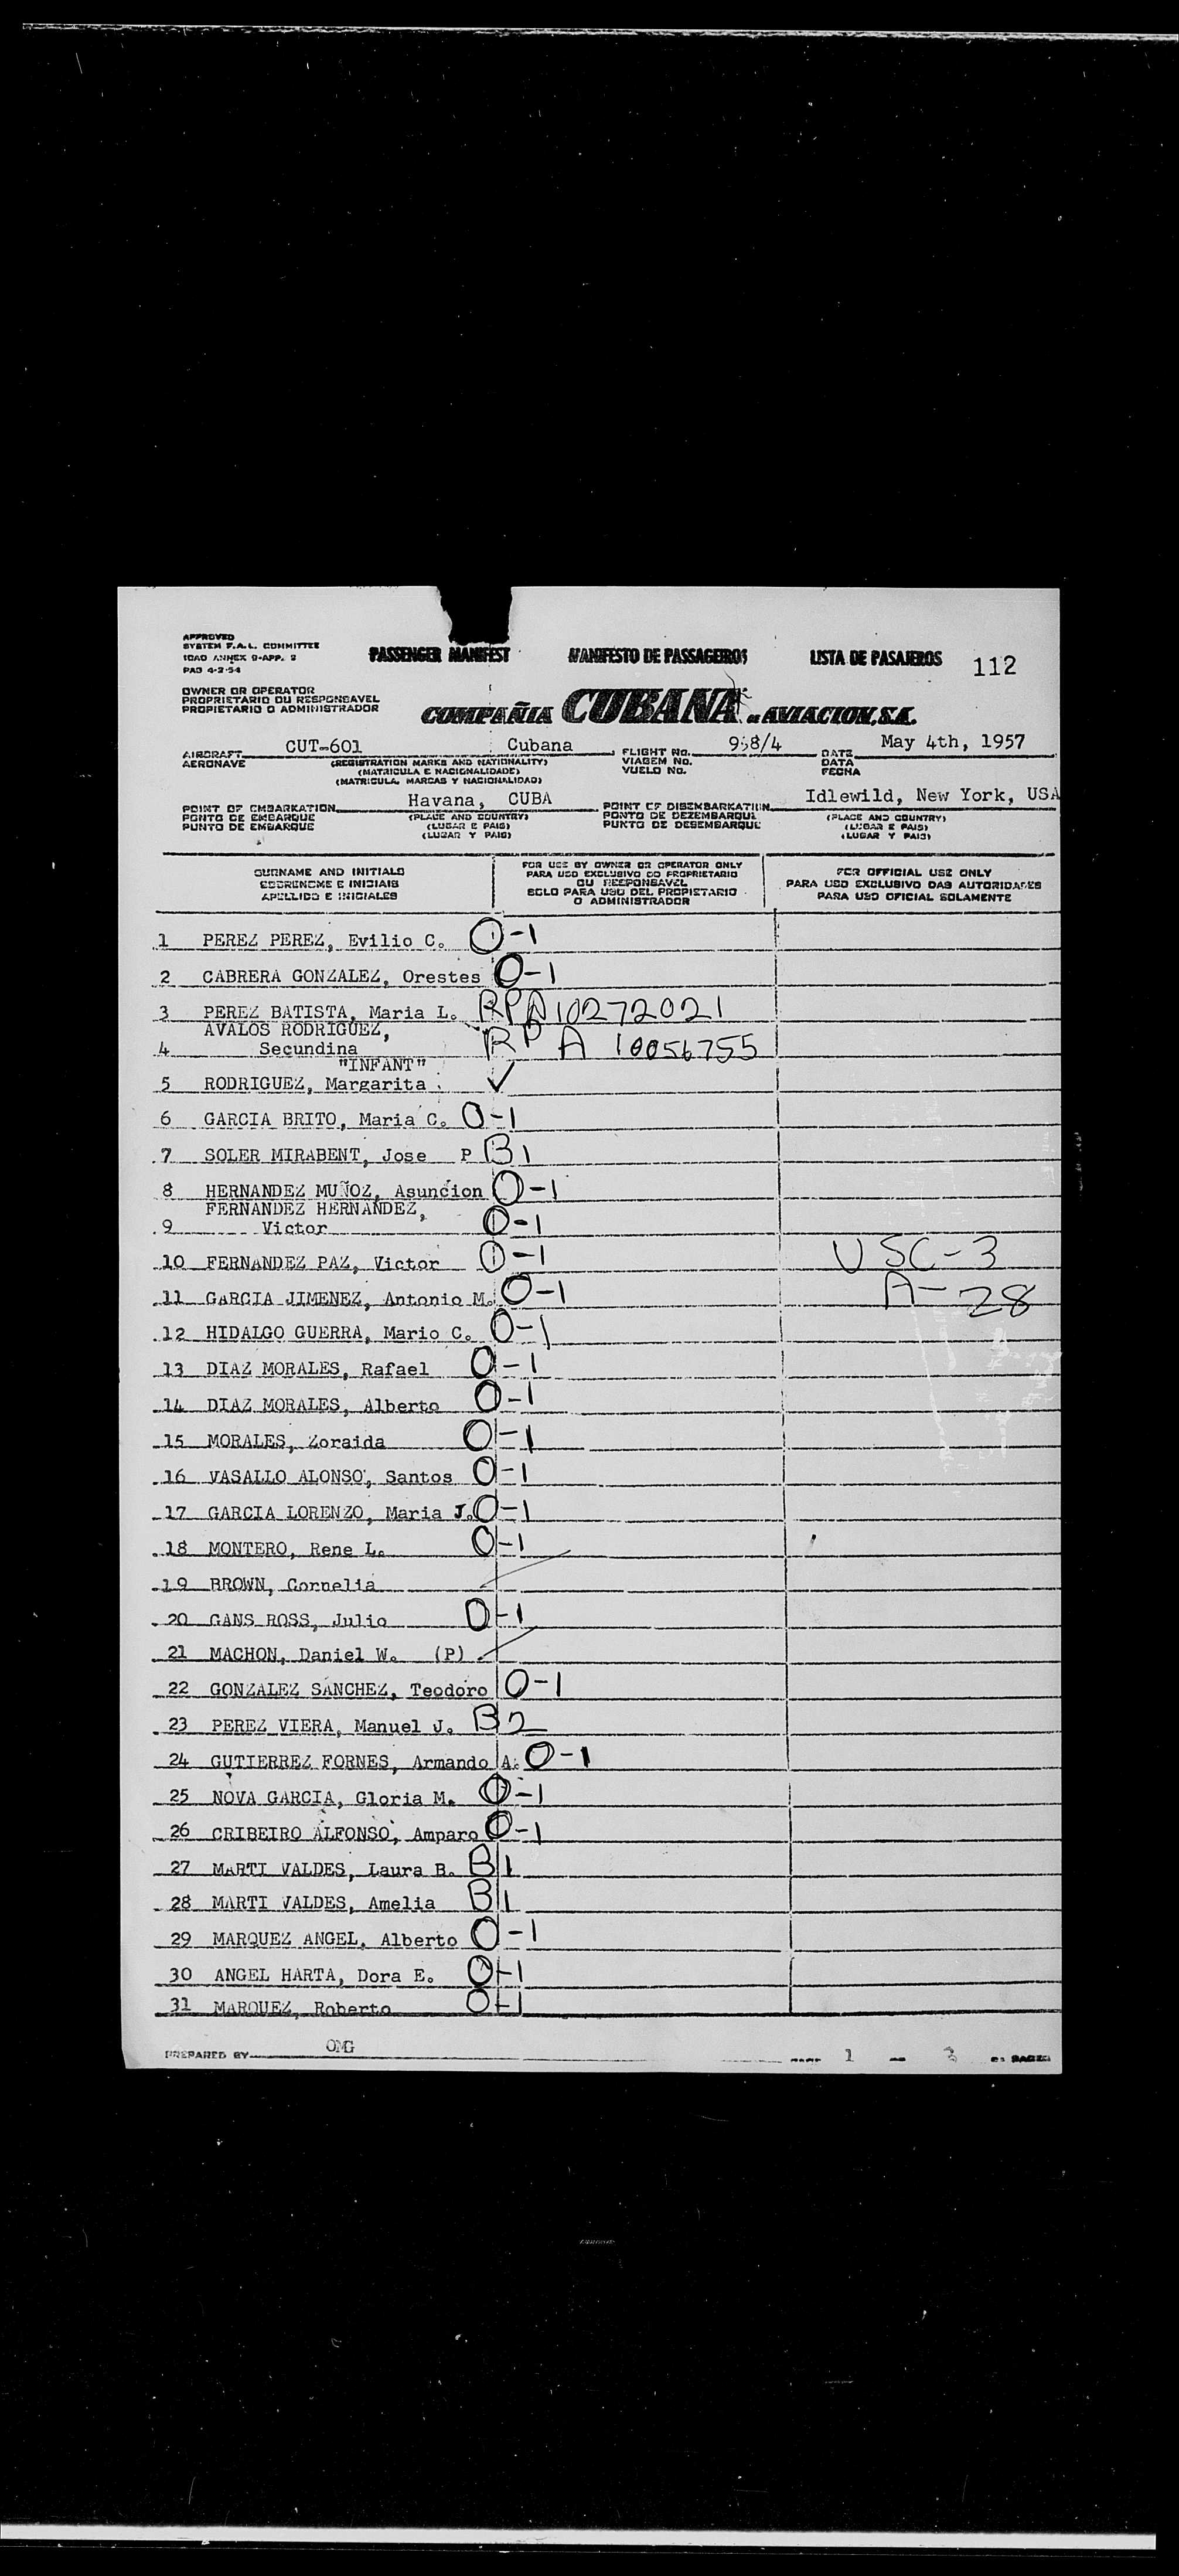 APPROVED
SYSTEM F.A.L. COMMITTEE
ICAO ANNEX 9-APP. 2
PAD 4-2-54
PASSENGER MANIFEST MANIFESTO DE PASSAGEIROS LISTA DE PASAJEROS 112
OWNER OR OPERATOR
PROPRIETARIO OU RESPONSAVEL
PROPIETARIO O ADMINISTRADOR
COMPAÑIA CUBANA DE AVIACION, S.A.
AIRCRAFT CUT-601 Cubana FLIGHT No. 958/4 DATE May 4th, 1957
AERONAVE (REGISTRATION MARKS AND NATIONALITY) VIAGEM No. DATA
(MATRICULA E NACIONALIDADE) VUELO No. FECHA
(MATRICULA, MARCAS Y NACIONALIDAD)
POINT OF EMBARKATION Havana, CUBA POINT OF DISEMBARKATION Idlewild, New York, USA
PONTO DE EMBARQUE (PLACE AND COUNTRY) PONTO DE DEZEMBARQUE (PLACE AND COUNTRY)
PUNTO DE EMBARQUE (LUGAR E PAIS) PUNTO DE DESEMBARQUE (LUGAR E PAIS)
(LUGAR Y PAIS) (LUGAR Y PAIS)
SURNAME AND INITIALS
SOBRENOME E INICIAIS
APELLIDO E INICIALES
FOR USE BY OWNER OR OPERATOR ONLY
PARA USO EXCLUSIVO DO PROPRIETARIO
OU RESPONSAVEL
SOLO PARA USO DEL PROPIETARIO
O ADMINISTRADOR
FOR OFFICIAL USE ONLY
PARA USO EXCLUSIVO DAS AUTORIDADES
PARA USO OFICIAL SOLAMENTE
1 PEREZ PEREZ, Evilio C. O-1
2 CABRERA GONZALEZ, Orestes O-1
3 PEREZ BATISTA, Maria L. RPA10272021
AVALOS RODRIGUEZ,
4 Secundina RP A 10056755
"INFANT"
5 RODRIGUEZ, Margarita ✓
6 GARCIA BRITO, Maria C. O-1
7 SOLER MIRABENT, Jose P B1
8 HERNANDEZ MUÑOZ, Asuncion O-1
FERNANDEZ HERNANDEZ,
9 Victor O-1
10 FERNANDEZ PAZ, Victor O-1 USC-3
11 GARCIA JIMENEZ, Antonio M. O-1 A-28
12 HIDALGO GUERRA, Mario C. O-1
13 DIAZ MORALES, Rafael O-1
14 DIAZ MORALES, Alberto O-1
15 MORALES, Zoraida O-1
16 VASALLO ALONSO, Santos O-1
17 GARCIA LORENZO, Maria J. O-1
18 MONTERO, Rene L. O-1
19 BROWN, Cornelia
20 GANS ROSS, Julio O-1
21 MACHON, Daniel W. (P)
22 GONZALEZ SANCHEZ, Teodoro O-1
23 PEREZ VIERA, Manuel J. B2
24 GUTIERREZ FORNES, Armando A. O-1
25 NOVA GARCIA, Gloria M. O-1
26 CRIBEIRO ALFONSO, Amparo O-1
27 MARTI VALDES, Laura B. B1
28 MARTI VALDES, Amelia B1
29 MARQUEZ ANGEL, Alberto O-1
30 ANGEL HARTA, Dora E. O-1
31 MARQUEZ, Roberto O-1
PREPARED BY OMG PAGE 1 PAGES